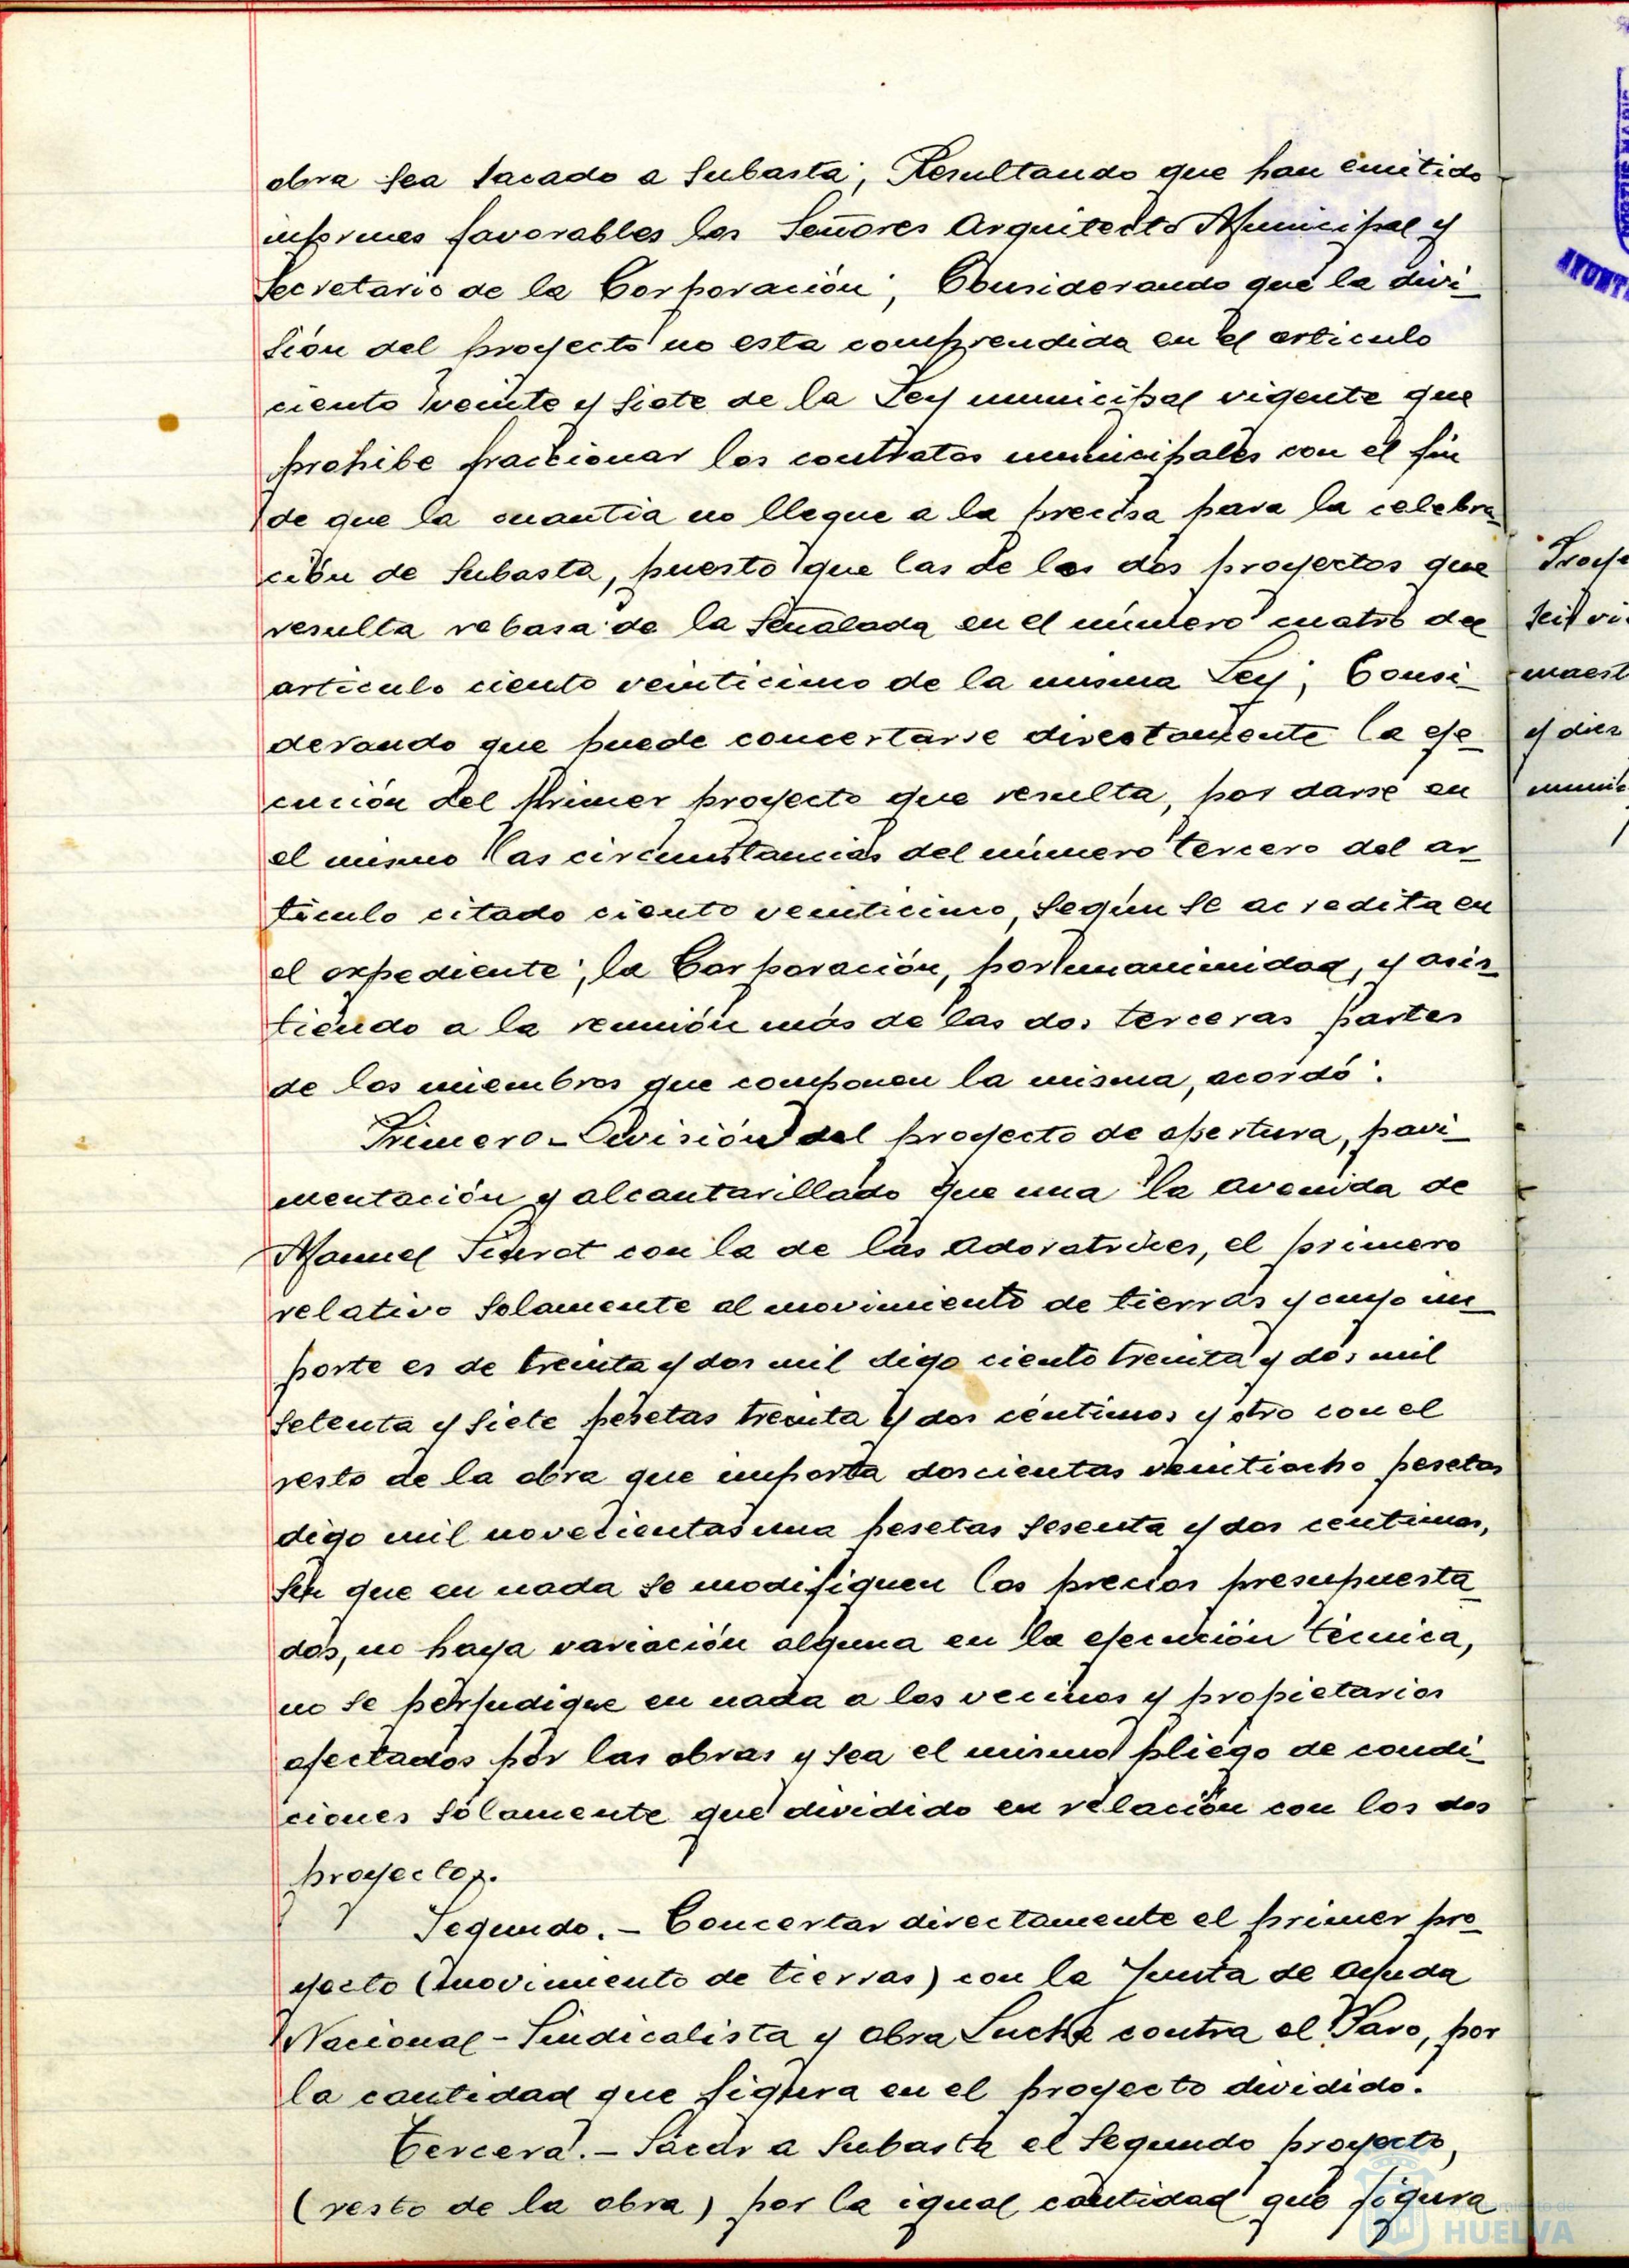 obra sea sacado a subasta; Resultando que han emitido
informes favorables los Señores Arquitecto Municipal y
Secretario de la Corporación; Considerando que la divi-
sión del proyecto no esta comprendida en el articulo
ciento veinte y siete de la Ley municipal vigente que
prohibe fraccionar los contratos municipales con el fin
de que la cuantia no llegue a la precisa para la celebra-
ción de subasta, puesto que las de los dos proyectos que
resulta rebasa de la señalada en el número cuatro del
articulo ciento veinticinco de la misma Ley; Consi-
derando que puede concertarse directamente la eje-
cución del primer proyecto que resulta, por darse en
el mismo las circunstancias del número tercero del ar-
tículo citado ciento veinticinco, según se acredita en
el expediente; la Corporación, por unanimidad, y asis-
tiendo a la reunión más de las dos terceras partes
de los miembros que componen la misma, acordó:
Primero- División del proyecto de apertura, pavi-
mentación y alcantarillado que una la avenida de
Manuel Siurot con la de las Adoratrices, el primero
relativo solamente al movimiento de tierras y cuyo im-
porte es de treinta y dos mil digo ciento treinta y dos mil
setenta y siete pesetas treinta y dos céntimos y otro con el
resto de la obra que importa doscientas veintiocho pesetas
digo mil novecientas una pesetas sesenta y dos centimos,
sin que en nada se modifiquen los precios presupuesta-
dos, no haya variación alguna en la ejecución técnica,
no se perjudique en nada a los vecinos y propietarios
afectados por las obras y sea el mismo pliego de condi-
ciones sólamente que dividido en relación con los dos
proyectos.
Segundo.- Concertar directamente el primer pro-
yecto (movimiento de tierras) con la Junta de Ayuda
Nacional-Sindicalista y Obra Lucha contra el Paro, por
la cantidad que figura en el proyecto dividido.
Tercera.- Sacar a subasta el segundo proyecto,
(resto de la obra) por la igual cantidad que figura
HUELVA